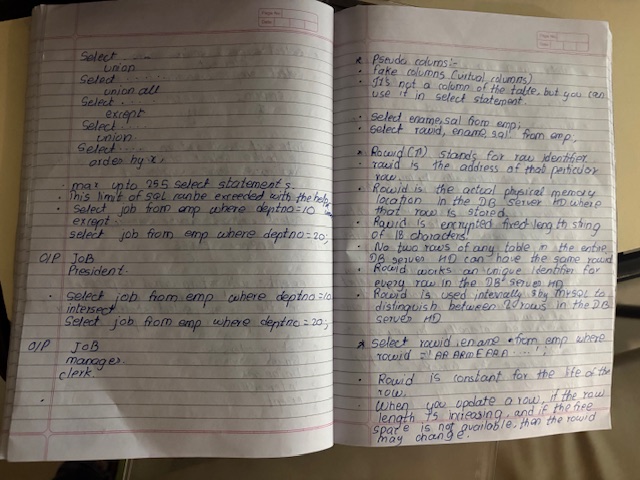 Select ....
union
Select ......
union all
Select ....
except
Select...
union
Select....
order by x;
. max upto 255 select statements.
. This limit of SQL can be exceeded with the help
. Select job from emp where deptno=10
except
select job from emp where deptno=20;
O/P JOB
President.
. Select job from emp where deptno=10
intersect
Select job from emp where deptno=20;
O/P JOB
manager
clerk.
Page No.
Date
* Pseudo colums:-
. Fake columns (virtual columns)
. It's not a column of the table, but you can
use it in select statement.
. select ename, sal from emp;
. select rowid, ename, sal from emp;
* Rowid stands for row identifier
. rowid is the address of that particular
row.
. Rowid is the actual physical memory
location in the DB server HD where
that row is stored
. Rowid is encrypted fixed length string
of 18 characters
. No two rows of any table in the entire
DB server HD can have the same rowid
. Rowid works as unique identifier for
every row in the DB server HD
. Rowid is used internally by MySQL to
distinguish between 2 rows in the DB
server HD
* select rowid, ename from emp where
rowid =
. Rowid is constant for the life of the
row.
. When you update a row, if the row
length is increasing, and if the free
space is not available, than the rowid
may change.